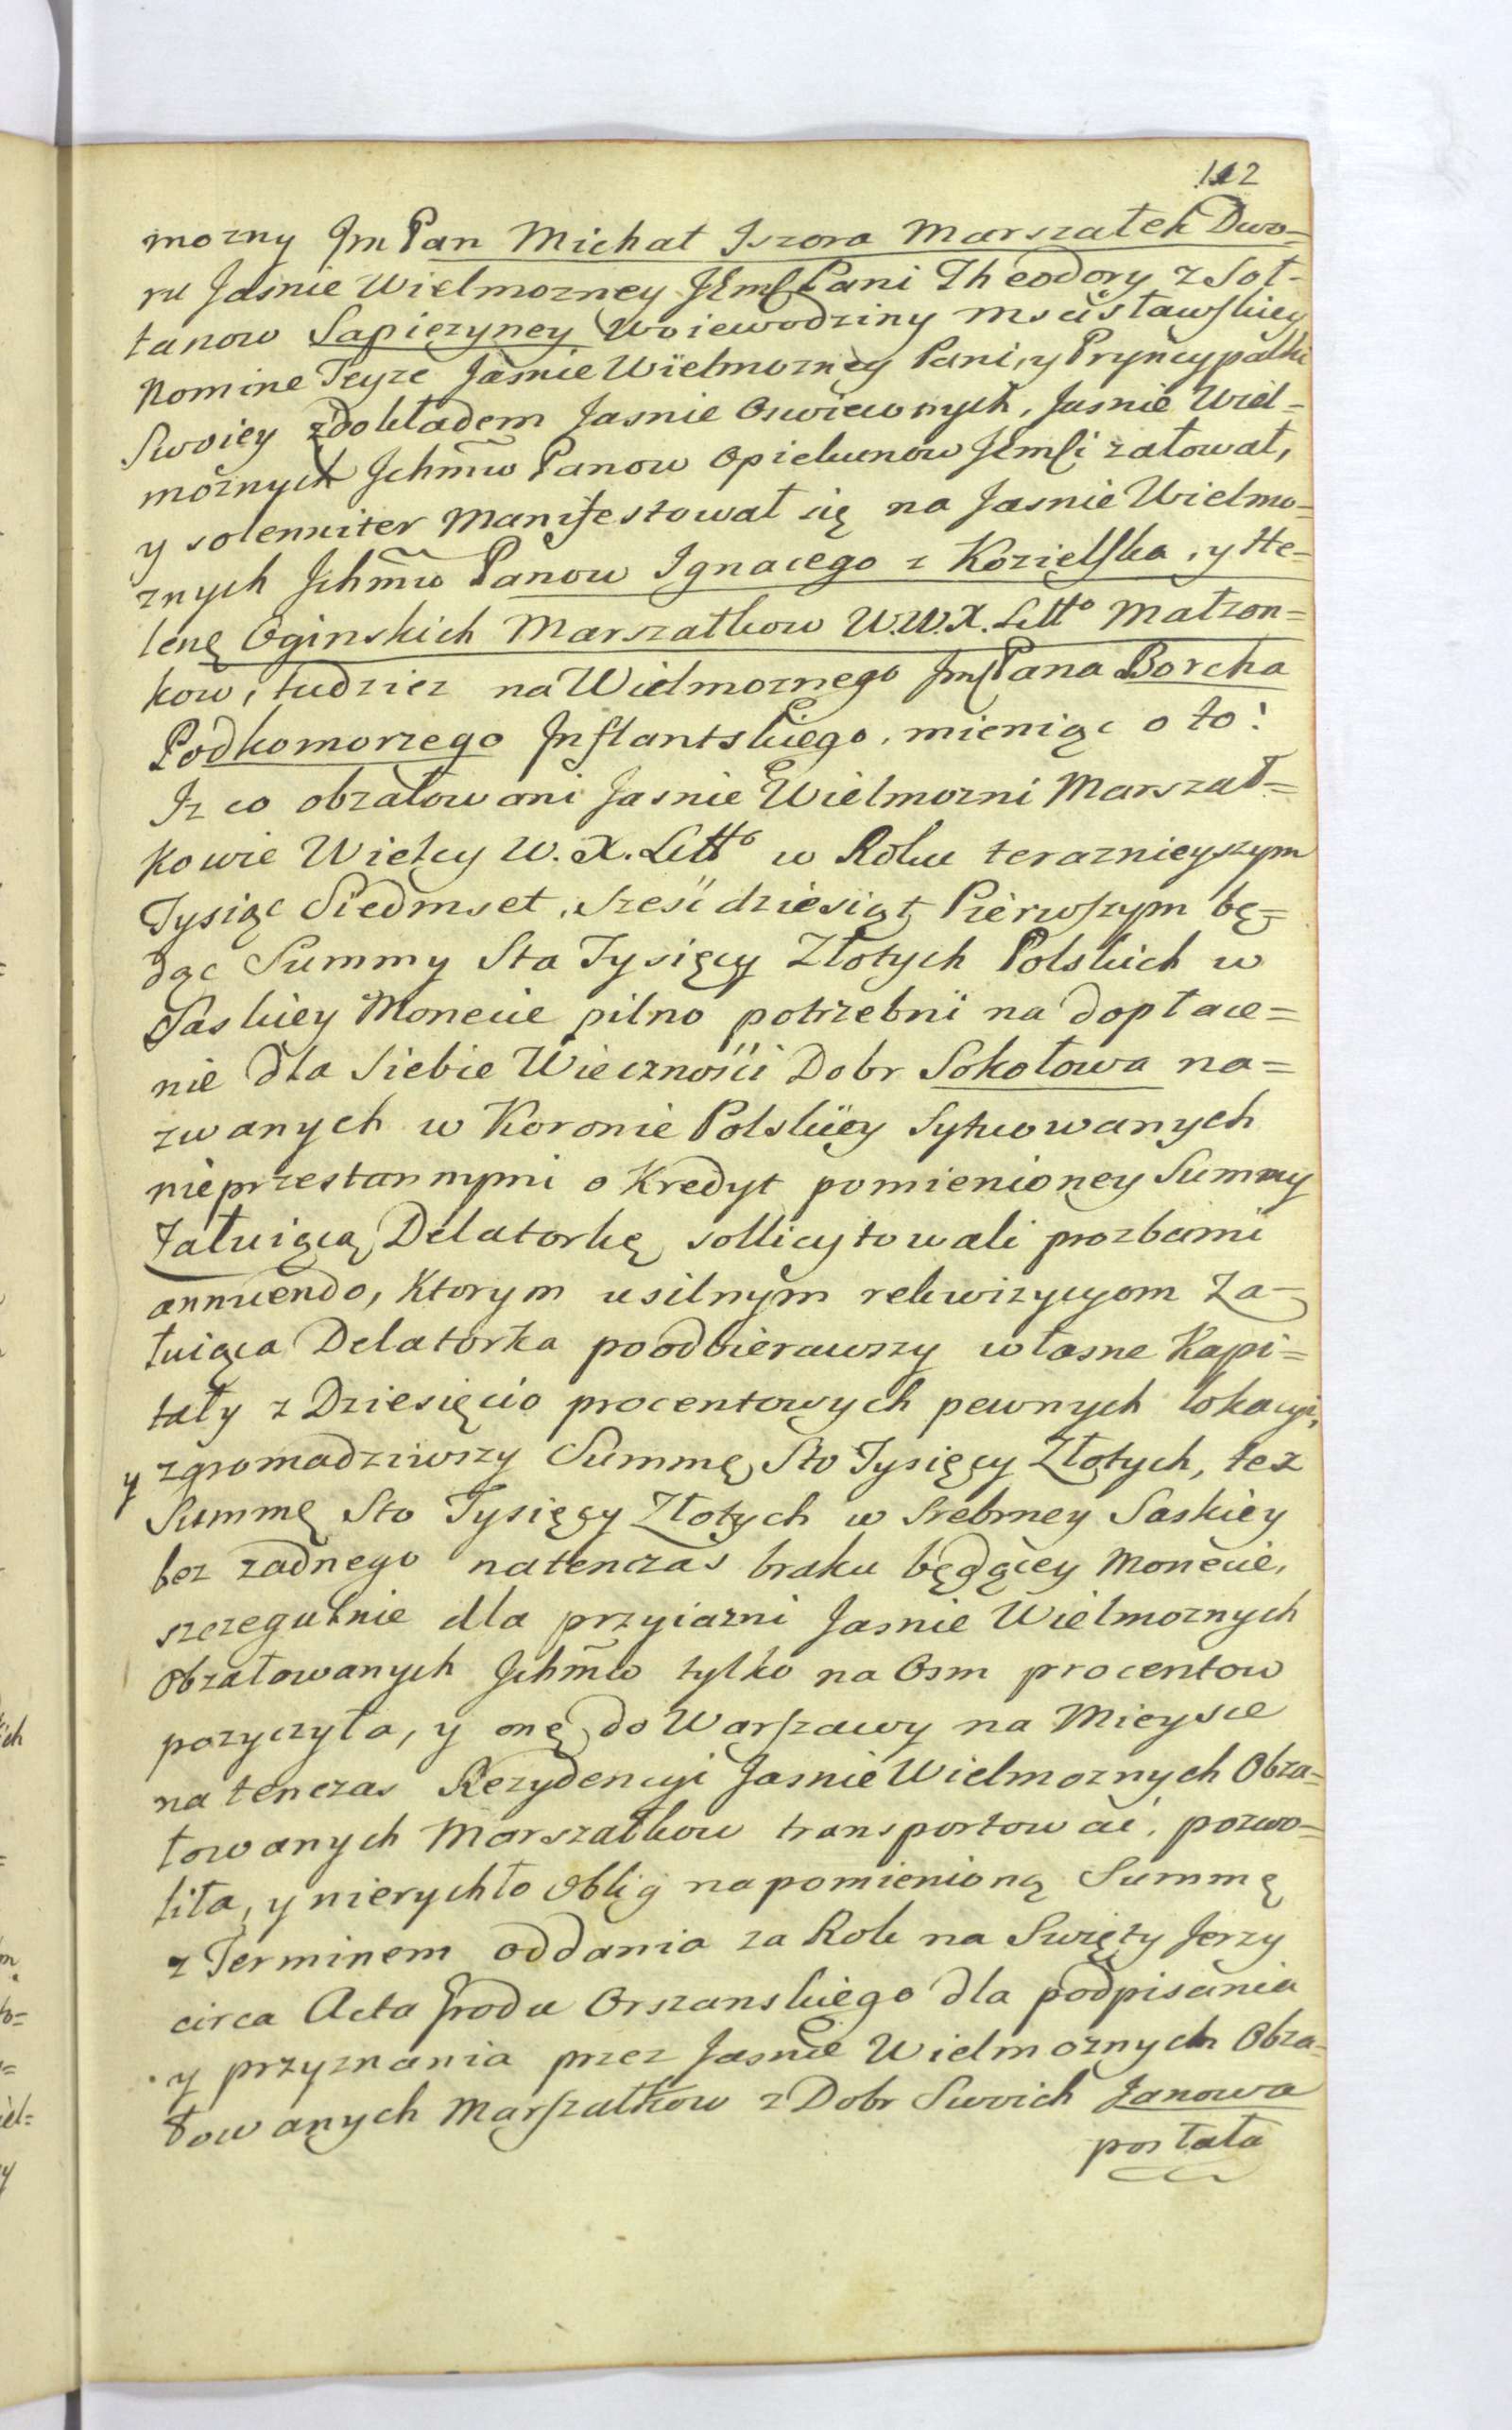 112
mozny Jm Pan Michał Iszora Marszałek Dwo=
ru Jaśnie Wielmozney JEmſ Pani Theodory z Soł-
tanow Sapiezyney Woiewodziny Mscisławſkiey
Nomine Teyze Jaśnie Wielmozney Pani, y Pryncypałki
Swoiey zdokładem Jasnie Oswieconych, Jasnie Wiel=
możnych Ichmw Panow Opiekunow JEmſi załował,
y solenniter Manifestował się na Jasnie Wielmo=
znych Ichmw Panow Ignacego z Kozielſka, y He=
lenę Oginskich Marszałkow W.W.X.Litto Małzon=
kow, tudziez na Wielmoznego Jmſ Pana Borcha
Podkomorzego Inflantskiego, mieniąc o to:
Iz co obzałowani Jasnie Wielmozni Marszał=
kowie Wielcy W.X.Litto w Roku teraznieyszym
Tysiąc Siedmset, Sześćdziesiąt Pierwſzym bę=
dąc Summy Sta Tysięcy Złotych Polskich w
Saskiey Monecie pilno potrzebni na dopłace=
nie dla Siebie Wieczności Dobr Sokołowa na=
zwanych w Koronie Polskiey Sytuowanych
nieprzestannymi o Kredyt pomienioney Summy
Załuiącą Delatorkę sollicytowali prozbami
annuendo, Ktorym usilnym rekwizycyom Za=
łuiąca Delatorka poodbierawszy własne Kapi=
tały z Dziesięcio procentowych pewnych lokacyi,
y zgromadziwszy Summę Sto Tysięcy Złotych, tez
Summę Sto Tysięcy Złotych w Srebrney Saskiey
bez zadnego natenczas braku będącey Monecie,
szczegulnie dla przyiazni Jasnie Wielmoznych
Obzałowanych Ichmw tylko na Osm procentow
pozyczyła, y onę do Warſzawy na Mieysce
natenczas Rezydencyi Jasnie Wielmoznych Obza=
łowanych Marszałkow transportować, pozwo=
liła, y nierychło Oblig na pomienioną Summę
z Terminem oddania za Rok na Swięty Jerzy
circa Acta Grodu Orszanskiego dla podpisania
y przyznania przez Jasnie Wielmoznych Obza=
łowanych Marſzałkow z Dobr Swoich Janowa
posłała